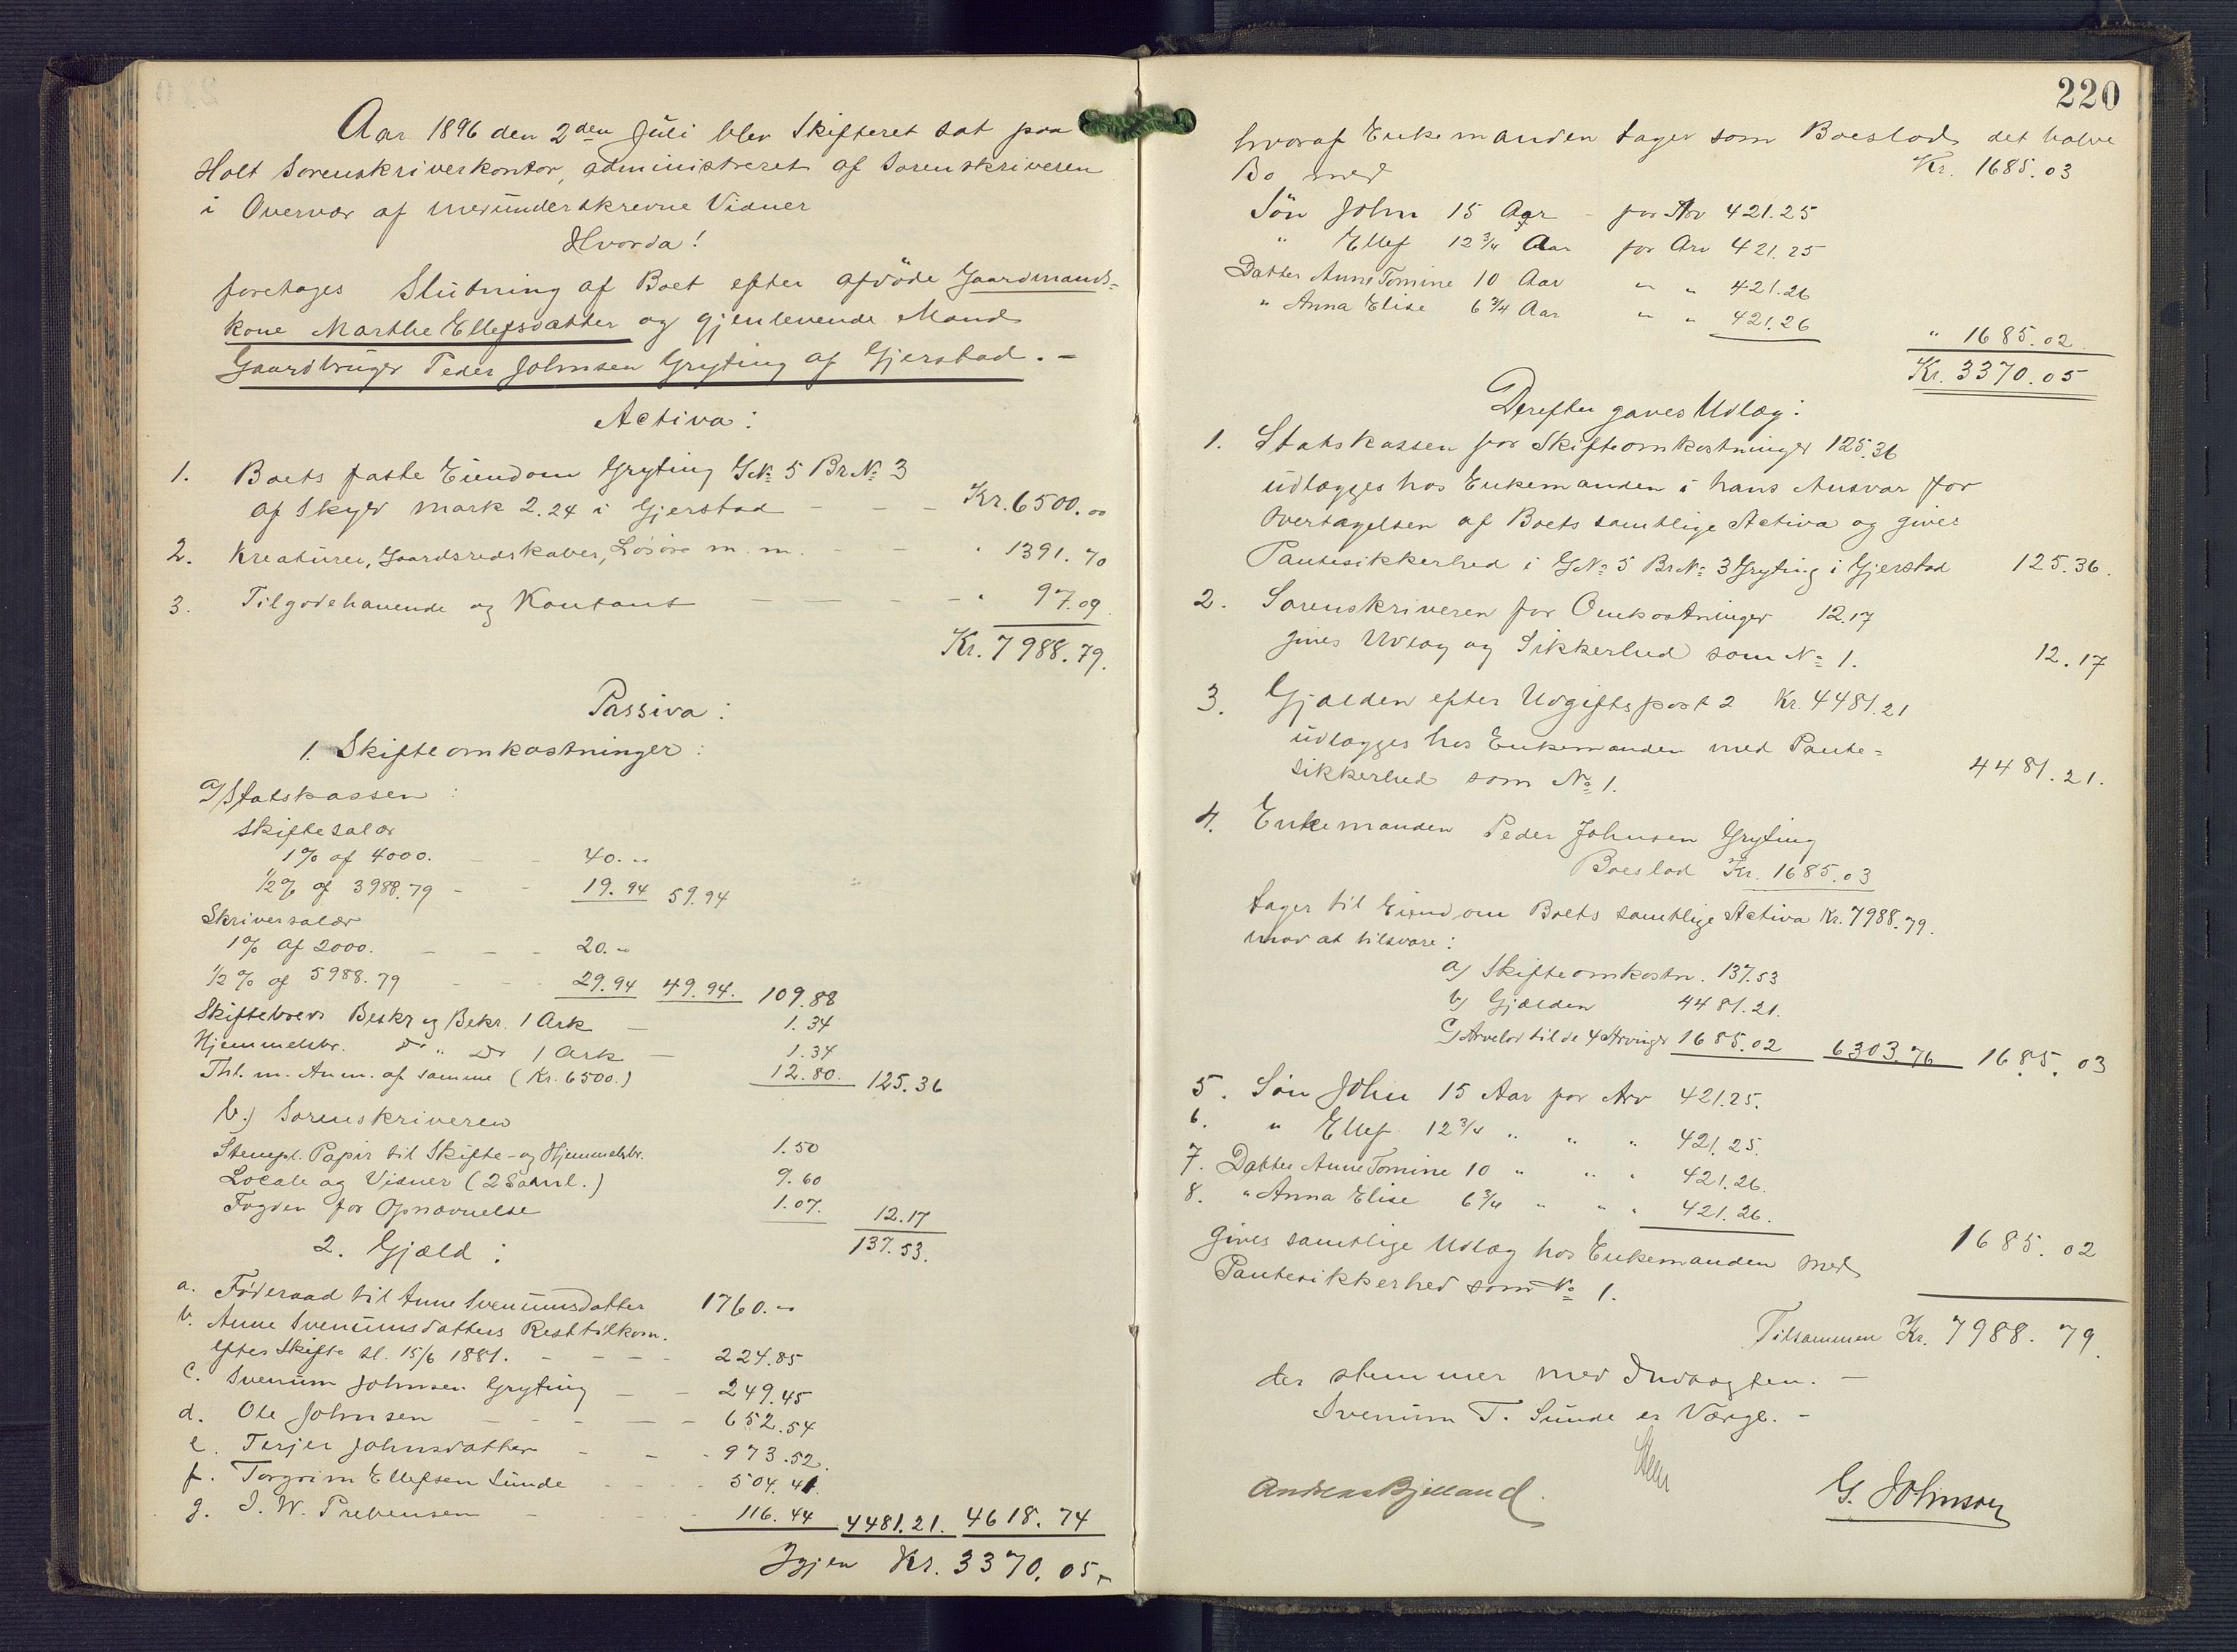 Aar 1896 den 2den Juli blev Skifteret sat paa
Holt Sorenskriverkontor, administreret af Sorenskriveren
i Overvær af medunderskrevne Vidner
Hvorda!
foretoges Slutning af Boet efter afdøde Gaardmands-
kone Marthe Ellefsdatter og gjenlevende Mand
Gaardbruger Peder Johnsen Gryting af Gjerstad. -
Activa:
1. Boets faste Eiendom Gryting GNº 5 BrNº 3
af Skyld Mark 2.24 i Gjerstad - - - Kr. 6500.00
2. Kreaturer, Gaardsredskaber, Løsøre m. m. - - " 1391.70
3. Tilgodehavende og Kontant - - - - " 97.09
Kr. 7988.79.
Passiva:
1. Skifteomkostninger:
a/ Statskassen:
Skiftesalær
1% af 4000. - - 40. "
1/2% af 3988.79 - - 19.94 59.94
Skriversalær
1% af 2000. - - - 20. "
1/2% af 5988.79 - - - 29.94 49.94. 109.88
Skiftebrevs Beskr. og Bekr. 1 Ark - 1.34
Hjemmelsbr. Do " Do 1 Ark - 1.34
Thl. m. Anm. af samme (Kr. 6500.) 12.80. 125.36
b.) Sorenskriveren
Stempl. Papir til Skifte- og Hjemmelsbr. 1.50
Locale og Vidner (2 Saml.) 9.60
Fogden for Opnævnelse 1.07. 12.17
2. Gjæld: 137.53.
a. Føderaad til Anne Svenumsdatter 1760. "
b. Anne Svenumsdatters Resttilkom.
efter Skifte sl. 15/6 1881. - - - - 224.85
c. Svenum Johnsen Gryting - - 249.45
d. Ole Johnsen - - - - - 652.54
e. Terjer Johnsdatter - - - 973.52.
f. Torgrim Ellefsen Sunde - - - 504.41.
g. J. W. Prebensen - - - 116.44 4481.21. 4618.74
Igjen Kr. 3370.05 -
220
hvoraf Enkemanden tager som Boeslod det halve
Bo med Kr. 1685.03
Søn John 15 Aar - for Arv 421.25
" Ellef 12 3/4 Aar for Arv 421.25
Datter Anne Tomine 10 Aar " " 421.26
" Anna Elise 6 3/4 Aar " " 421.26
" 1685.02
Kr. 3370.05
Derefter gaves Udlæg:
1. Statskassen for Skifteomkostninger 125.36
udlægges hos Enkemanden i hans Ansvar for
Overtagelsen af Boets samtlige Activa og gives
Pantesikkerhed i GNº 5 BrNº 3 Gryting i Gjerstad 125.36.
2. Sorenskriveren for Omkostninger 12.17
gives Udlæg og Sikkerhed som Nº 1. 12.17
3. Gjælden efter Udgiftspost 2 Kr. 4481.21
udlægges hos Enkemanden med Pante-
sikkerhed som Nº 1. 4481.21.
4. Enkemanden Peder Johnsen Gryting
Boeslod Kr. 1685.03
tager til Eiendom Boets samtlige Activa Kr. 7988.79.
mod at tilsvare:
a) Skifteomkostn. 137.53
b) Gjælden 4481.21.
c) Arvelod til de 4 Arvinger 1685.02 6303.76 1685.03
5. Søn John 15 Aar for Arv 421.25.
6. " Ellef 12 3/4 " " " 421.25.
7. Datter Anne Tomine 10 " " " 421.26.
8. " Anna Elise 6 3/4 " " " 421.26.
gives samtlige Udlæg hos Enkemanden med 1685.02
Pantesikkerhed som Nº 1.
Tilsammen Kr. 7988.79.
der stemmer med Indtægten. -
Svenum T. Sunde er Værge. -
Andreas Bjelland. G. Johnsen